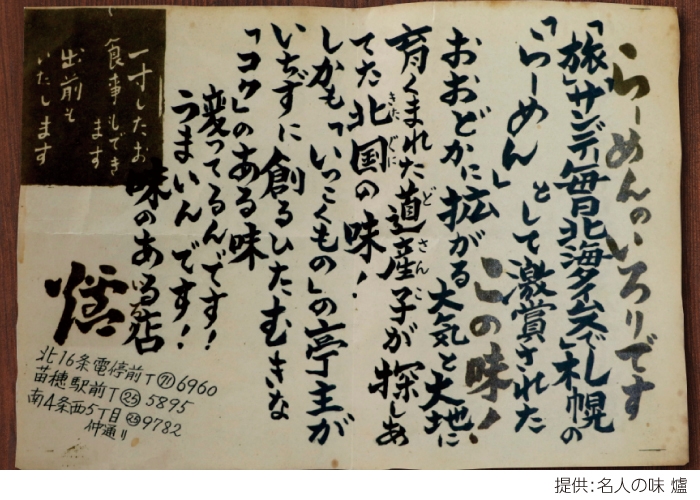 らーめんのいろりです
「旅」「サンデー毎日」「北海タイムス」でし
「らーめん」として激賞された
札幌の
この味!
おおどかに拡がる大気と大地に
育くまれた道産子が探しあ
きたぐに
どさんこ
てた北国の味!
しかも「いっこくもの」の亭主が
いちずに創るひたむきな
「コク」のある味
変ってるんです!
うまいんです!
味のある店
いろり
爐
一寸したお
食事もでき
ます
出前も
いたします
北16条電停前T(71)6960
苗穂駅前T(25)5895
南4条西5丁目(23)9782
仲通り
提供:名人の味 爐